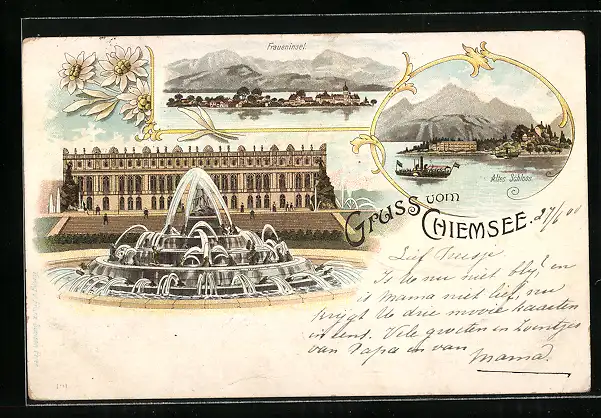 Fraueninsel.
Altes Schloss
GRUSS VOM CHIEMSEE. 27/6 00
Lief Treesje
Is U nu niet bly! en
is Mama niet lief, nu
krijgt U drie mooie kaarten
in eens. Vele groeten en zoentjes
van Papa en van
Mama.